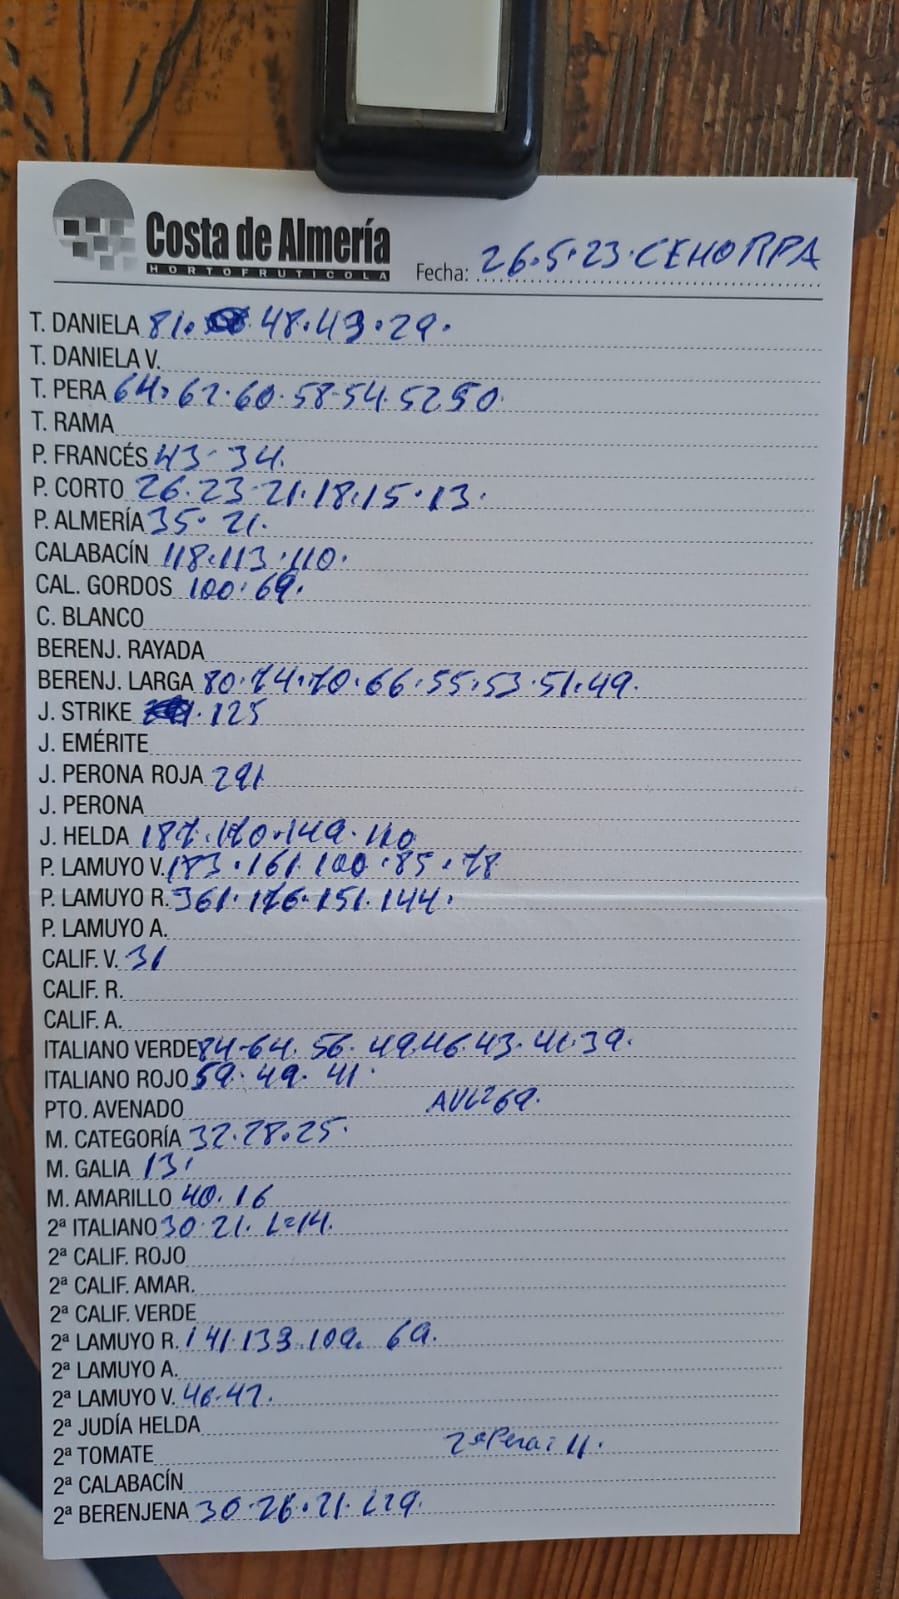 Costa de Almería
HORTOFRUTICOLA
Fecha: 26.5.23. CEHORPA
T. DANIELA 81. 48.43.29.
T. DANIELA V.
T. PERA 64. 62.60.58.54.52 50
T. RAMA
P. FRANCÉS 43. 34.
P. CORTO 26.23.21.18.15.13.
P. ALMERÍA 35. 21.
CALABACÍN 118.113.110.
CAL. GORDOS 100. 69.
C. BLANCO
BERENJ. RAYADA
BERENJ. LARGA 80.74.70.66.55.53.51.49.
J. STRIKE 125
J. EMÉRITE
J. PERONA ROJA 291
J. PERONA
J. HELDA 187.170.149.
P. LAMUYO V. 183.161.100.85.78
P. LAMUYO R. 361.176.151.144.
P. LAMUYO A.
CALIF. V. 31
CALIF. R.
CALIF. A.
ITALIANO VERDE 84-64. 56. 49.46.43.41.39.
ITALIANO ROJO 59.49.41.
PTO. AVENADO 69.
M. CATEGORÍA 32.28.25.
M. GALIA 13.
M. AMARILLO 40.16
2ª ITALIANO 30.21. L=14.
2ª CALIF. ROJO
2ª CALIF. AMAR.
2ª CALIF. VERDE
2ª LAMUYO R. 141.133.109. 69.
2ª LAMUYO A.
2ª LAMUYO V. 46.
2ª JUDÍA HELDA
2ª TOMATE 2ª Pera:
2ª CALABACÍN
2ª BERENJENA 30.26.21.